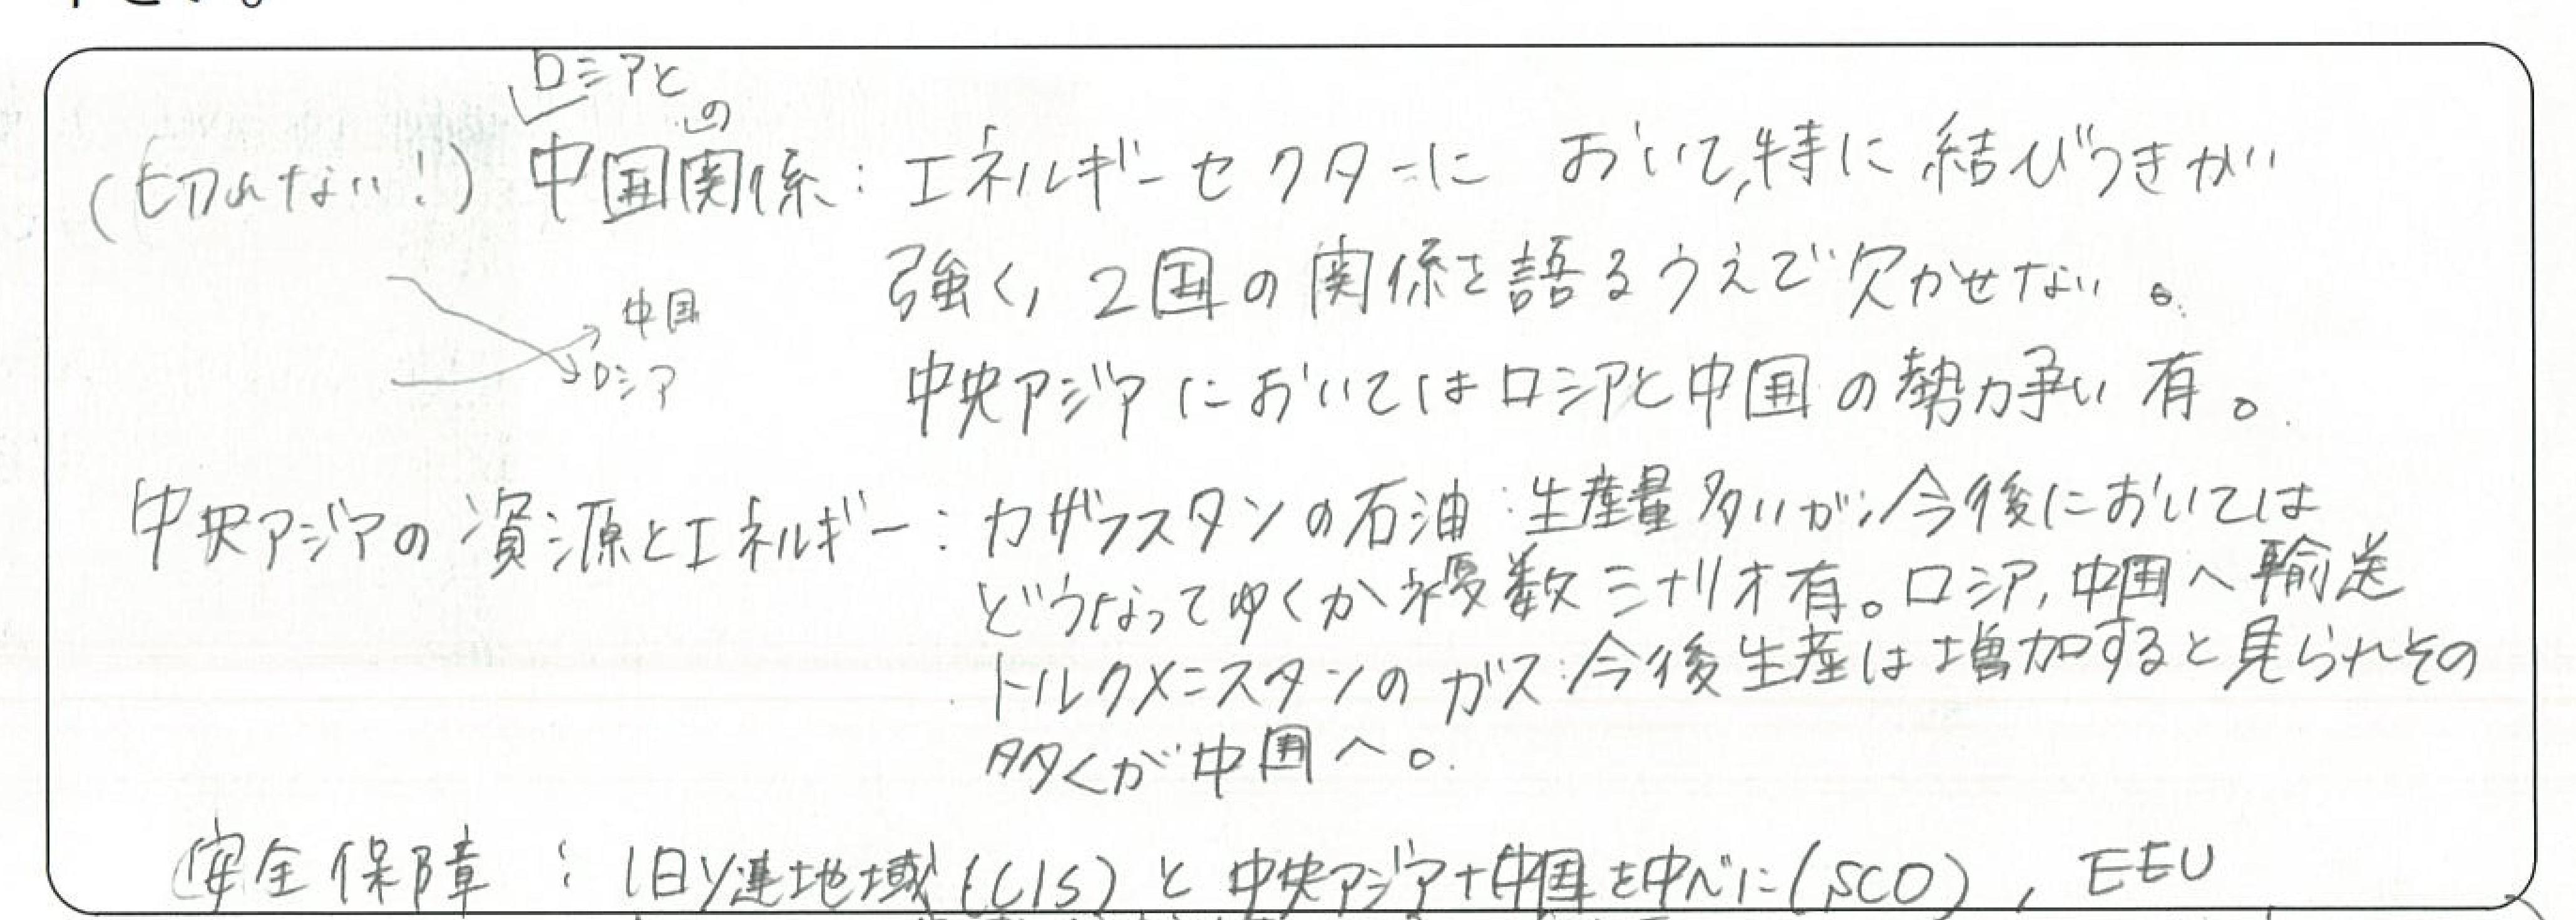 ロシアと
の
(切れない!) 中国関係: エネルギーセクターに おいて,特に 結びつきがい
強く, 2国の関係を語るうえで欠かせない。
中国
ロシア
中央アジアにおいてはロシアと中国の勢力争い有。
中央アジアの資源とエネルギー: カザフスタンの石油:生産量多いが,今後においては
どうなってゆくか複数シナリオ有。ロシア,中国へ輸送
トルクメニスタンのガス:今後生産は増加すると見られその
多くが中国へ。
安全保障 : 旧ソ連地域(CIS)と中央アジア+中国を中心に(SCO), EEU